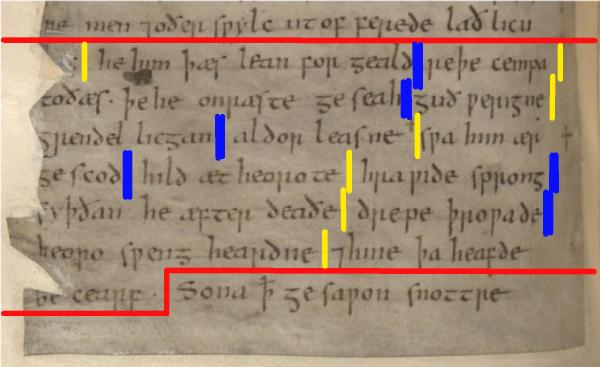 ne men ⁊ oðer sƿylc ut of ferede lað licu
he him þæs lean for geald reþe cempa
to ðæs · þe he on ræste ge seah guð ƿerigne
grendel licgan aldor leasne sƿa him ær
ge scod hild æt heorote hra ƿide sprong
syþðan he æfter deaðe drepe þroƿade
heoro sƿeng heardne ⁊ hine þa heafde
be cearf · Sona ꝥ ge saƿon snottre